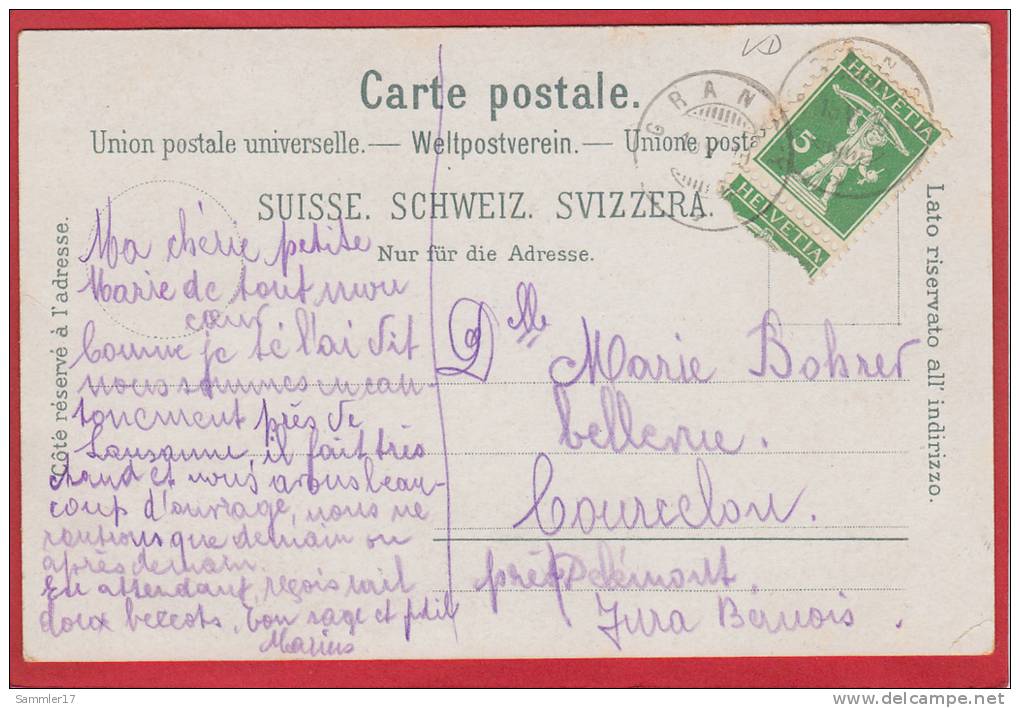 VD
Carte postale.
Union postale universelle.— Weltpostverein. — Unione posta
SUISSE. SCHWEIZ. SVIZZERA.
Nur für die Adresse.
Côté réservé à l'adresse.
Lato riservato all' indirizzo.
HELVETIA
5
HELVETIA
GRAN
Ma chérie petite
Marie de tout mon
cœur
Comme je té l'ai dit
nous sommes en can-
tonement près de
Lausanne, il fait très
chaud et nous avons beau-
coup d'ouvrage, nous ne
rontrons que demain ou
après demain.
En attendant, reçois mil
doux beccots, ton sage et ptit
Marius
Dlle
Marie Bohrer
bellevue.
Courcelon.
près Delémont.
Jura Bernois.
Sammler17
delcampe.net